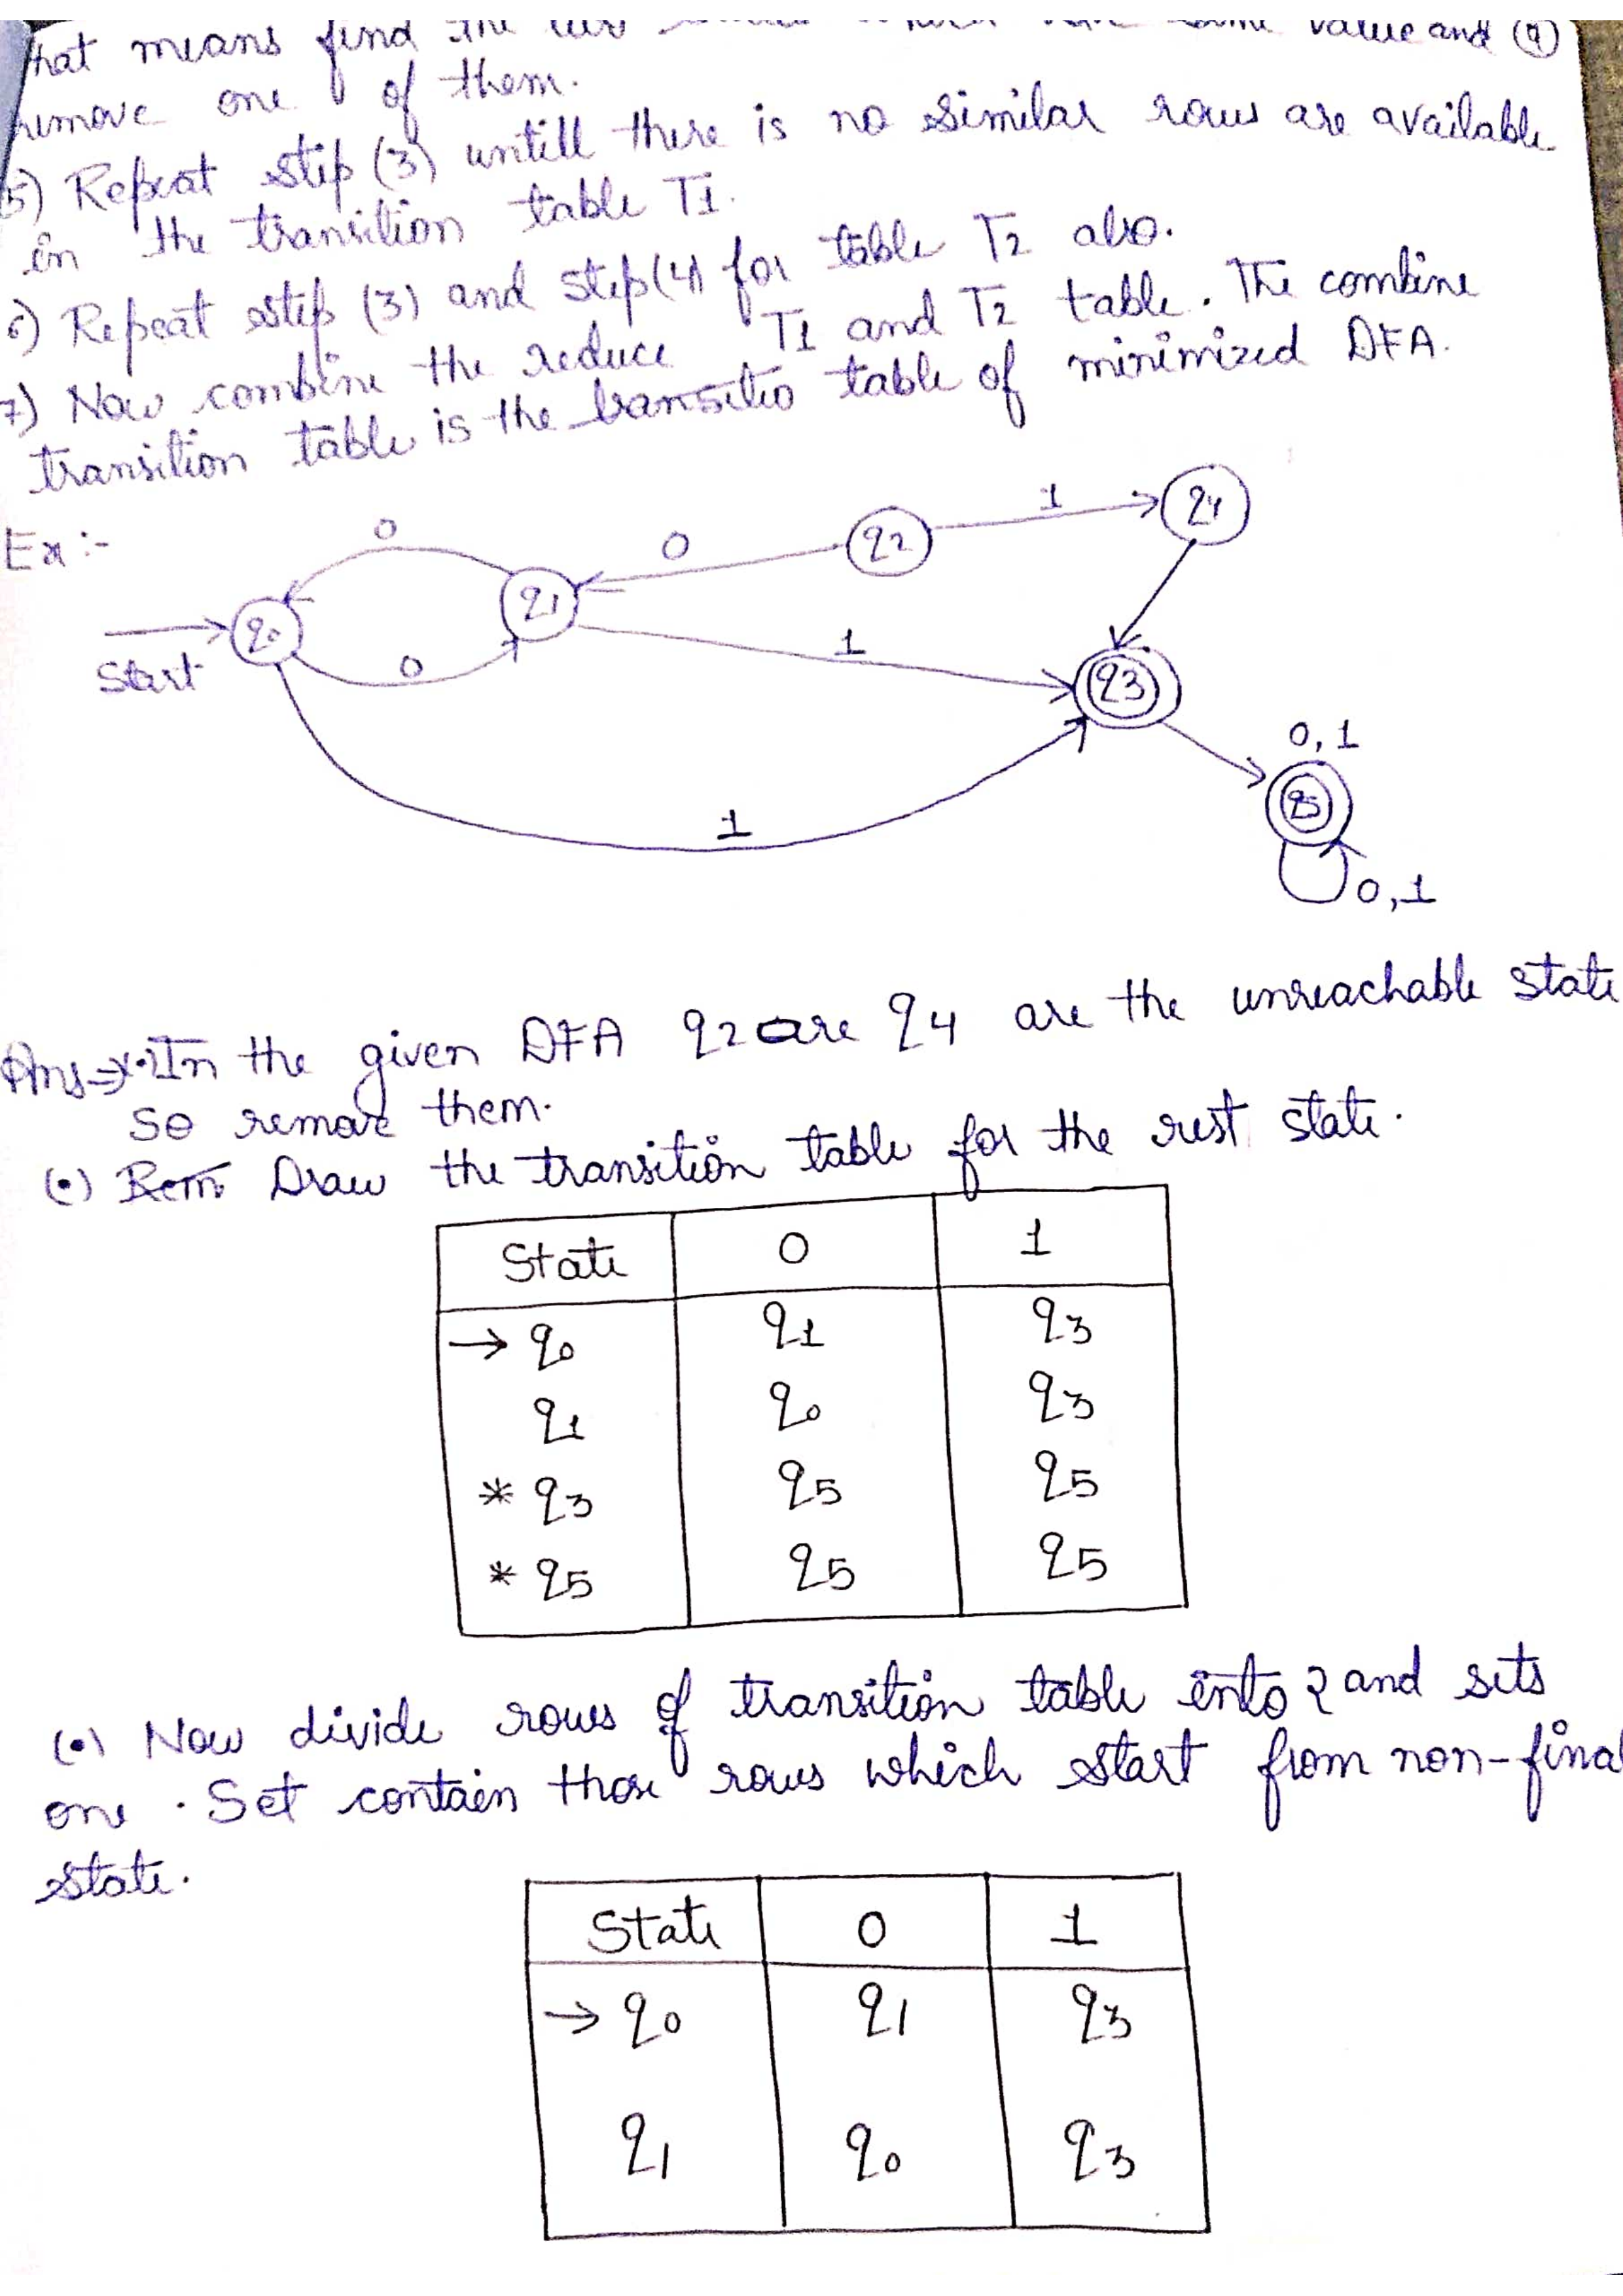 that means find the value and (4)
remove one of them.
5) Repeat step (3) untill there is no similar rows are available
in the transition table T1.
6) Repeat step (3) and step(4) for table T2 also.
7) Now combine the reduce T1 and T2 table. The combine
transition table is the transitio table of minimized DFA.
Ex :-
0
0
1
q4
q2
q1
q0
Start
0
1
q3
0,1
q5
1
0,1
Ans⇒ In the given DFA q2 are q4 are the unreachable state
So remove them.
(•) Rem Draw the transition table for the rest state.
State 0 1
→ q0 q1 q3
q1 q0 q3
* q3 q5 q5
* q5 q5 q5
(•) Now divide rows of transition table into 2 and sets
one . Set contain those rows which start from non-final
state.
State 0 1
→ q0 q1 q3
q1 q0 q3